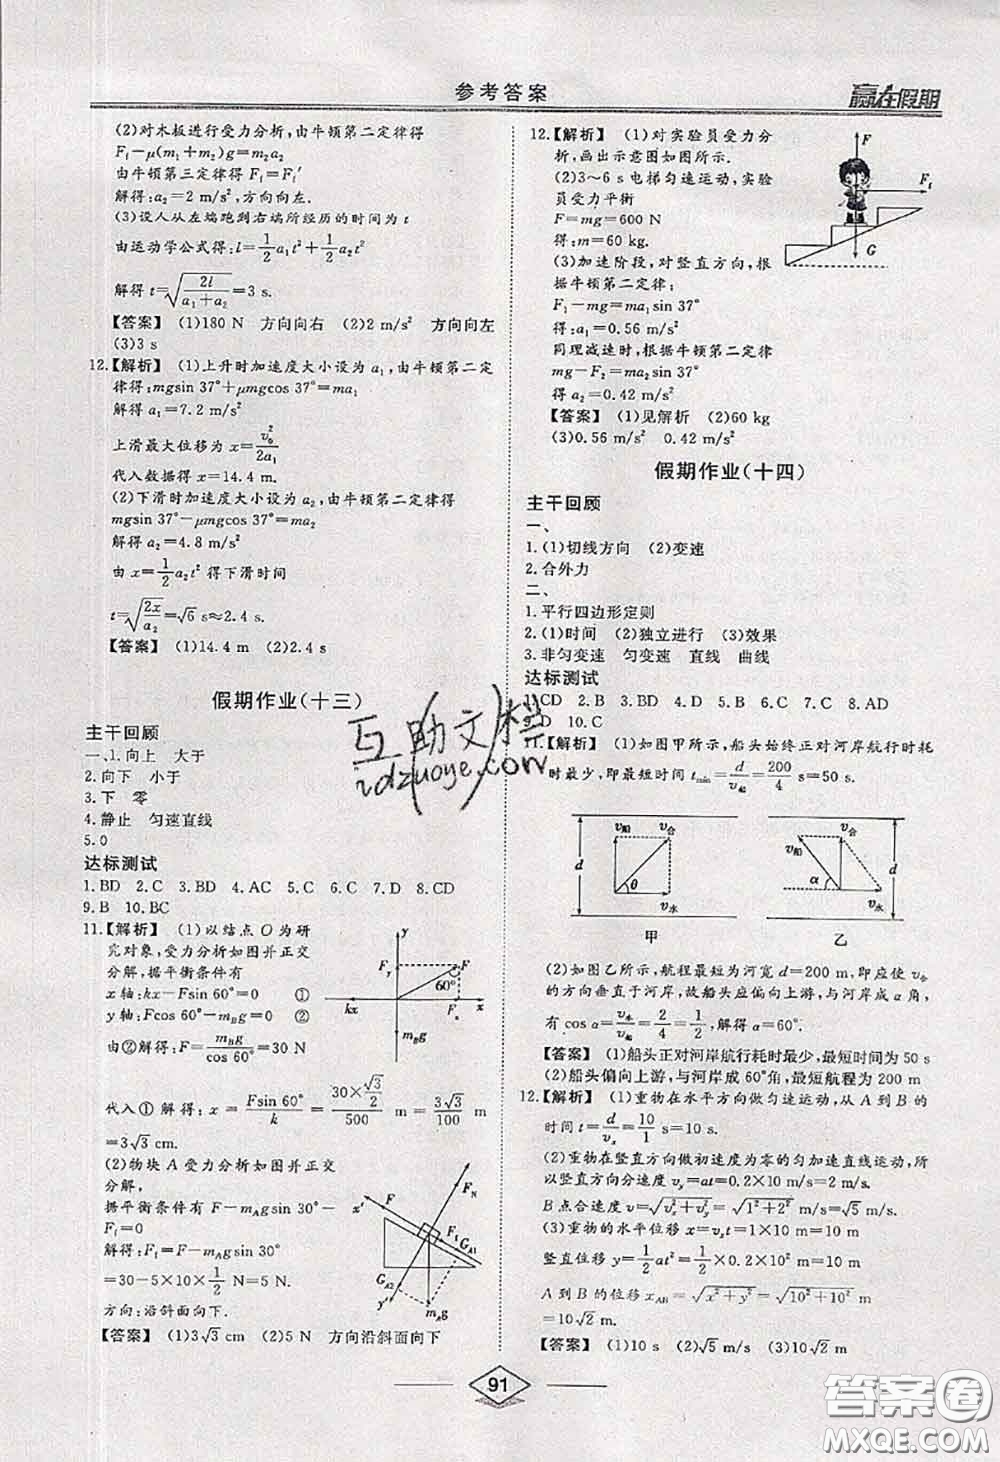 参考答案
赢在假期
(2)对木板进行受力分析,由牛顿第二定律得
F₁-μ(m₁+m₂)g=m₂a₂
由牛顿第三定律得 F₁=F₁′
解得:a₂=2 m/s²,方向向左.
(3)设人从左端跑到右端所经历的时间为 t
由运动学公式得:l=1/2 a₁t²+1/2 a₂t²
解得 t=√(2l/(a₁+a₂))=3 s.
【答案】 (1)180 N 方向向右 (2)2 m/s² 方向向左
(3)3 s
12.【解析】 (1)上升时加速度大小设为 a₁,由牛顿第二定
律得:mgsin 37°+μmgcos 37°=ma₁
解得 a₁=7.2 m/s²
上滑最大位移为 x=v₀²/2a₁
代入数据得 x=14.4 m.
(2)下滑时加速度大小设为 a₂,由牛顿第二定律得
mgsin 37°-μmgcos 37°=ma₂
解得 a₂=4.8 m/s²
由 x=1/2 a₂t² 得下滑时间
t=√(2x/a₂)=√6 s≈2.4 s.
【答案】 (1)14.4 m (2)2.4 s
假期作业(十三)
主干回顾
一、1.向上 大于
2.向下 小于
3.下 零
4.静止 匀速直线
5.0
达标测试
1.BD 2.C 3.BD 4.AC 5.C 6.C 7.D 8.CD
9.B 10.BC
11.【解析】 (1)以结点 O 为研
究对象,受力分析如图并正交
分解,据平衡条件有
x 轴:kx-Fsin 60°=0 ①
y 轴:Fcos 60°-m_Bg=0 ②
由②解得:F=m_Bg/cos 60°=30 N
y
F_y
F
60°
kx
F_x
x
m_Bg
代入① 解得:x=Fsin 60°/k=(30×√3/2)/500 m=3√3/100 m
=3√3 cm.
(2)物块 A 受力分析如图并正交
分解,
据平衡条件有 F-m_Agsin 30°-
F_f=0
解得:F_f=F-m_Agsin 30°
=30-5×10×1/2 N=5 N.
方向:沿斜面向下.
x′
F
F_N
F_f
G_A1
G_A2
y′
m_Ag
【答案】 (1)3√3 cm (2)5 N 方向沿斜面向下
12.【解析】 (1)对实验员受力分
析,画出示意图如图所示.
(2)3～6 s 电梯匀速运动,实验
员受力平衡
F=mg=600 N
得:m=60 kg.
(3)加速阶段,对竖直方向,根
据牛顿第二定律:
F₁-mg=ma₁sin 37°
得:a₁=0.56 m/s²
同理减速时,根据牛顿第二定律
mg-F₂=ma₂sin 37°
得 a₂=0.42 m/s²
【答案】 (1)见解析 (2)60 kg
(3)0.56 m/s² 0.42 m/s²
F
F_f
G
假期作业(十四)
主干回顾
一、
1.(1)切线方向 (2)变速
2.合外力
二、
1.平行四边形定则
2.(1)时间 (2)独立进行 (3)效果
3.非匀变速 匀变速 直线 曲线
达标测试
1.CD 2.B 3.BD 4.D 5.C 6.C 7.C 8.AD
9.D 10.C
11.【解析】 (1)如图甲所示,船头始终正对河岸航行时耗
时最少,即最短时间 t_min=d/v船=200/4 s=50 s.
v船 v合
d
θ
v水
甲
v船 v合
d
α
v水
乙
(2)如图乙所示,航程最短为河宽 d=200 m,即应使 v合
的方向垂直于河岸,故船头应偏向上游,与河岸成 α 角,
有 cos α=v水/v船=2/4=1/2,解得 α=60°.
【答案】 (1)船头正对河岸航行耗时最少,最短时间为 50 s
(2)船头偏向上游,与河岸成 60°角,最短航程为 200 m
12.【解析】 (1)重物在水平方向做匀速运动,从 A 到 B 的
时间 t=d/vₓ=10/1 s=10 s.
(2)重物在竖直方向做初速度为零的匀加速直线运动,所
以竖直方向分速度 v_y=at=0.2×10 m/s=2 m/s
B 点合速度 v=√(vₓ²+v_y²)=√(1²+2²) m/s=√5 m/s.
(3)重物的水平位移 x=vₓt=1×10 m=10 m
竖直位移 y=1/2 at²=1/2×0.2×10² m=10 m
A 到 B 的位移 x_AB=√(x²+y²)=√(10²+10²) m
=10√2 m.
【答案】 (1)10 s (2)√5 m/s (3)10√2 m
91
互助文档
idzuoye.com
答案圈
MXQE.COM